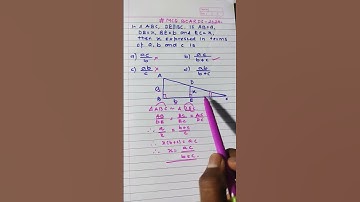 # MCQ BOARDS-2026.
In △ ABC, DE∥BC, If AB=a,
DE=x, BE=b and EC=c,
then x expressed in terms
of a, b and c is
a) ac/b  b) ac/b+c ✓
c) ab/c  d) ab/b+c
A
D
a
x
B b E c
△ ABC ~ △ DEC
AB/DE = BC/EC = AC/DC
∴ a/x = b+c/c
∴ x(b+c) = ac
∴ x = ac/b+c